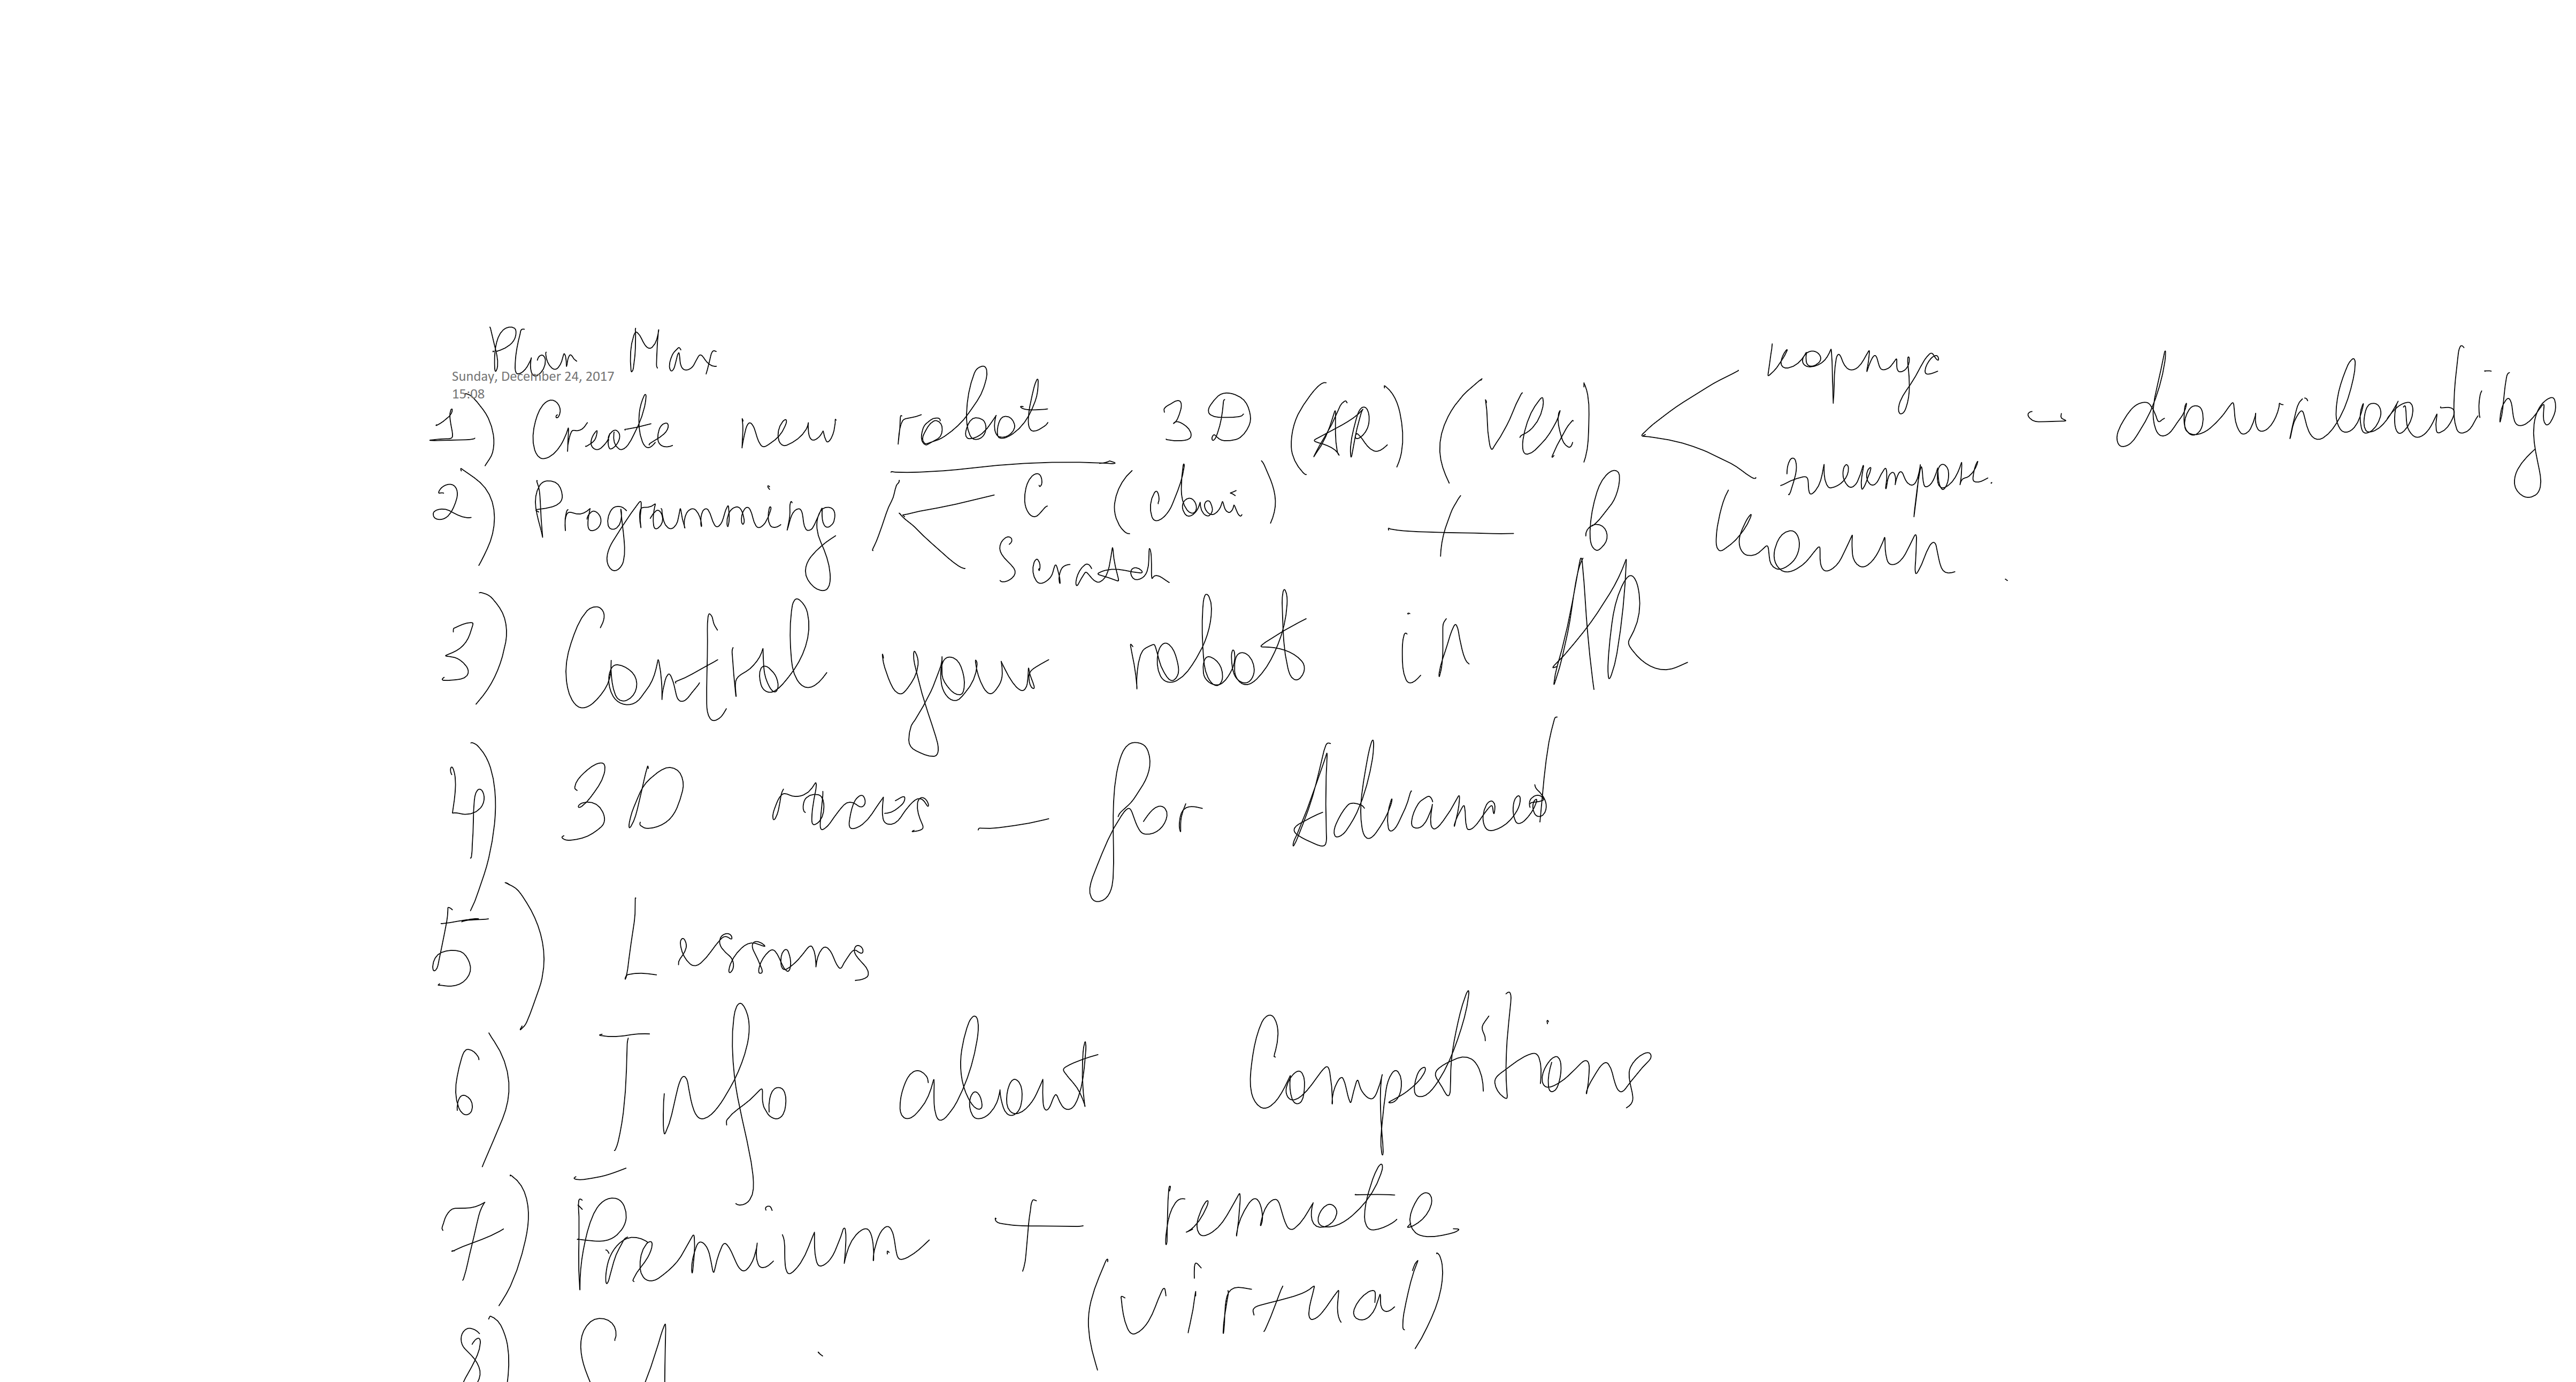 Plan Max
Sunday, December 24, 2017
15:08
1) Create new robot 3D (AR) (Vex) корпус электрон. - downloading
2) Programming / C (свой) Scratch + в комп.
3) Control your robot in AR
4) 3D races - for Advanced
5) Lessons
6) Info about Competitions
7) Premium + remote
(virtual)
8)